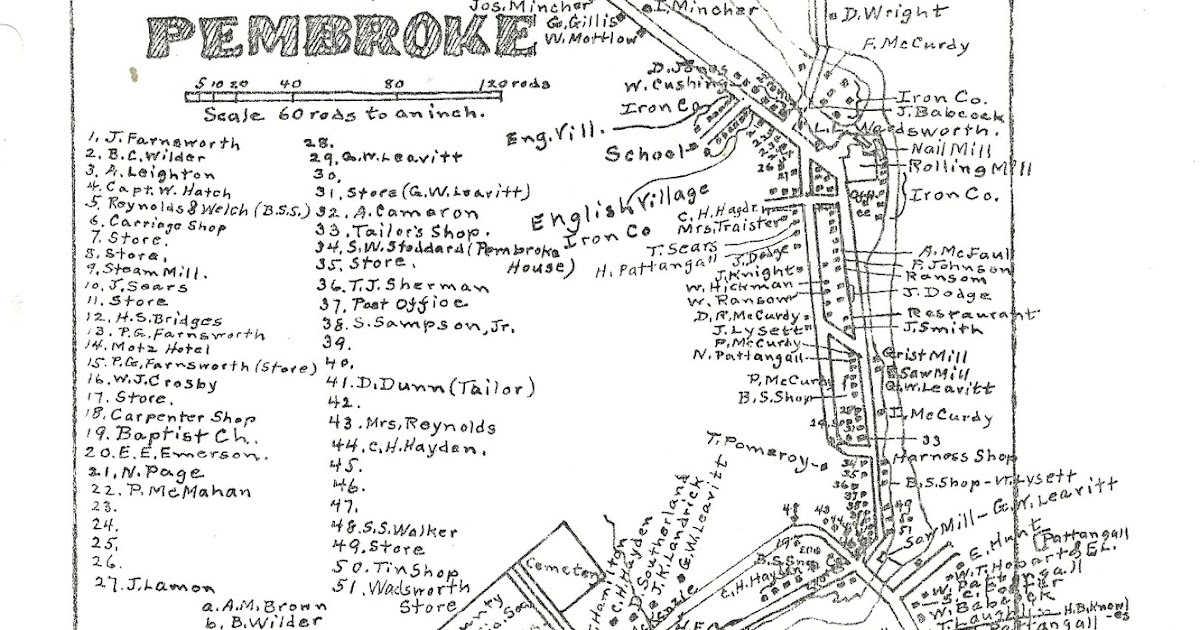 PEMBROKE
5 10 20 40 80 120 rods
Scale 60 rods to an inch.
1. J. Farnsworth
2. B.C. Wilder
3. A. Leighton
4. Capt. W. Hatch
5. Reynolds & Welch (B.S.S.)
6. Carriage Shop
7. Store.
8. Store.
9. Steam Mill.
10. J. Sears
11. Store
12. H.S. Bridges
13. P.G. Farnsworth
14. Motz Hotel
15. P.G. Farnsworth (Store)
16. W.J. Crosby
17. Store.
18. Carpenter Shop
19. Baptist Ch.
20. E.E. Emerson.
21. N. Page
22. P. McMahan
23.
24.
25.
26.
27. J. Lamon
a. A.M. Brown
b. B. Wilder
28.
29. G.W. Leavitt
30.
31. Store (G.W. Leavitt)
32. A. Cameron
33. Tailor's Shop.
34. S.W. Stoddard (Pembroke House)
35. Store.
36. T.J. Sherman
37. Post Office
38. S. Sampson, Jr.
39.
40.
41. D. Dunn (Tailor)
42.
43. Mrs. Reynolds
44. C.H. Hayden.
45.
46.
47.
48. S.S. Walker
49. Store
50. Tin Shop
51. Wadsworth Store
Jos. Mincher
G. Gillis
W. Mottlow
I. Mincher
D. Wright
F. McCurdy
D. Jones
W. Cushing
Iron Co.
Eng. Vill.
School
English Village
Iron Co
Iron Co.
J. Babcock
L. L. Wadsworth.
Nail Mill
Rolling Mill
Iron Co.
C. H. Haydn
Mrs. Traister
T. Sears
H. Pattangall
J. Dodge
J. Knight
W. Hickman
W. Ransom
D. A. McCurdy
J. Lysett
P. McCurdy
N. Pattangall
P. McCurdy
B.S. Shop
A. McFaul
P. Johnson
Ransom
J. Dodge
Restaurant
J. Smith
Grist Mill
Saw Mill
G.W. Leavitt
I. McCurdy
33
Harness Shop
T. Pomeroy
B.S. Shop - W. Lysett
Saw Mill - G.W. Leavitt
Cemetery
Hamilton
C.H. Hayden
D. Southerland
J.K. Landrick
G.W. Leavitt
B.S. Shop
C.H. Hayden
E. Hunt
Pattangall
W.T. Hobart
W. Babcock
H.B. Knowles